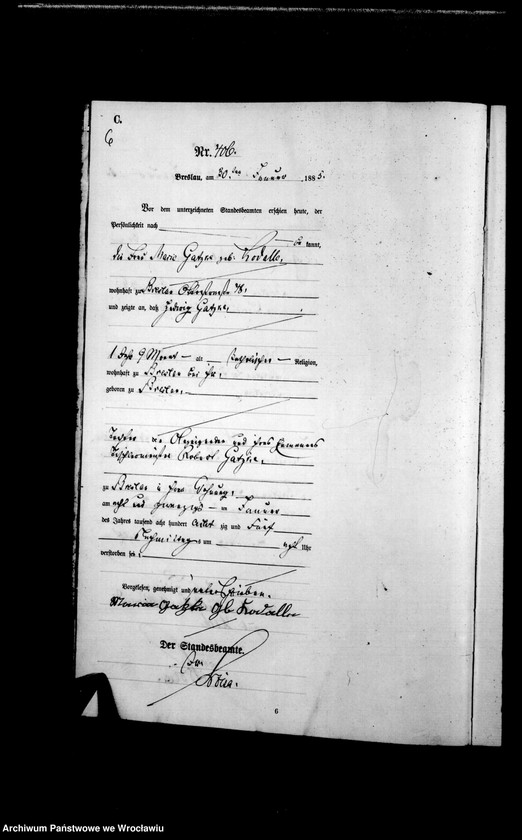 C.
6
Nr. 406.
Breslau, am 30ten Januar 1885.
Vor dem unterzeichneten Standesbeamten erschien heute, der
Persönlichkeit nach
be kannt,
die Frau Marie Gatzke geb. Kodalle,
wohnhaft zu Breslau 48,
und zeigte an, daß Hedwig Gatzke,
1 Jahr 9 Monat alt, katholischer Religion,
wohnhaft zu Breslau bei ihr,
geboren zu Breslau,
Tochter der und ihres Ehemannes
Robert Gatzke,
zu Breslau in ihrer Wohnung,
am acht und zwanzigsten Januar
des Jahres tausend acht hundert achtzig und fünf
Nachmittags um acht Uhr
verstorben sei.
Vorgelesen, genehmigt und unterschrieben.
Maria Gatzke gb Kodalle
Der Standesbeamte.
6
Archiwum Państwowe we Wrocławiu